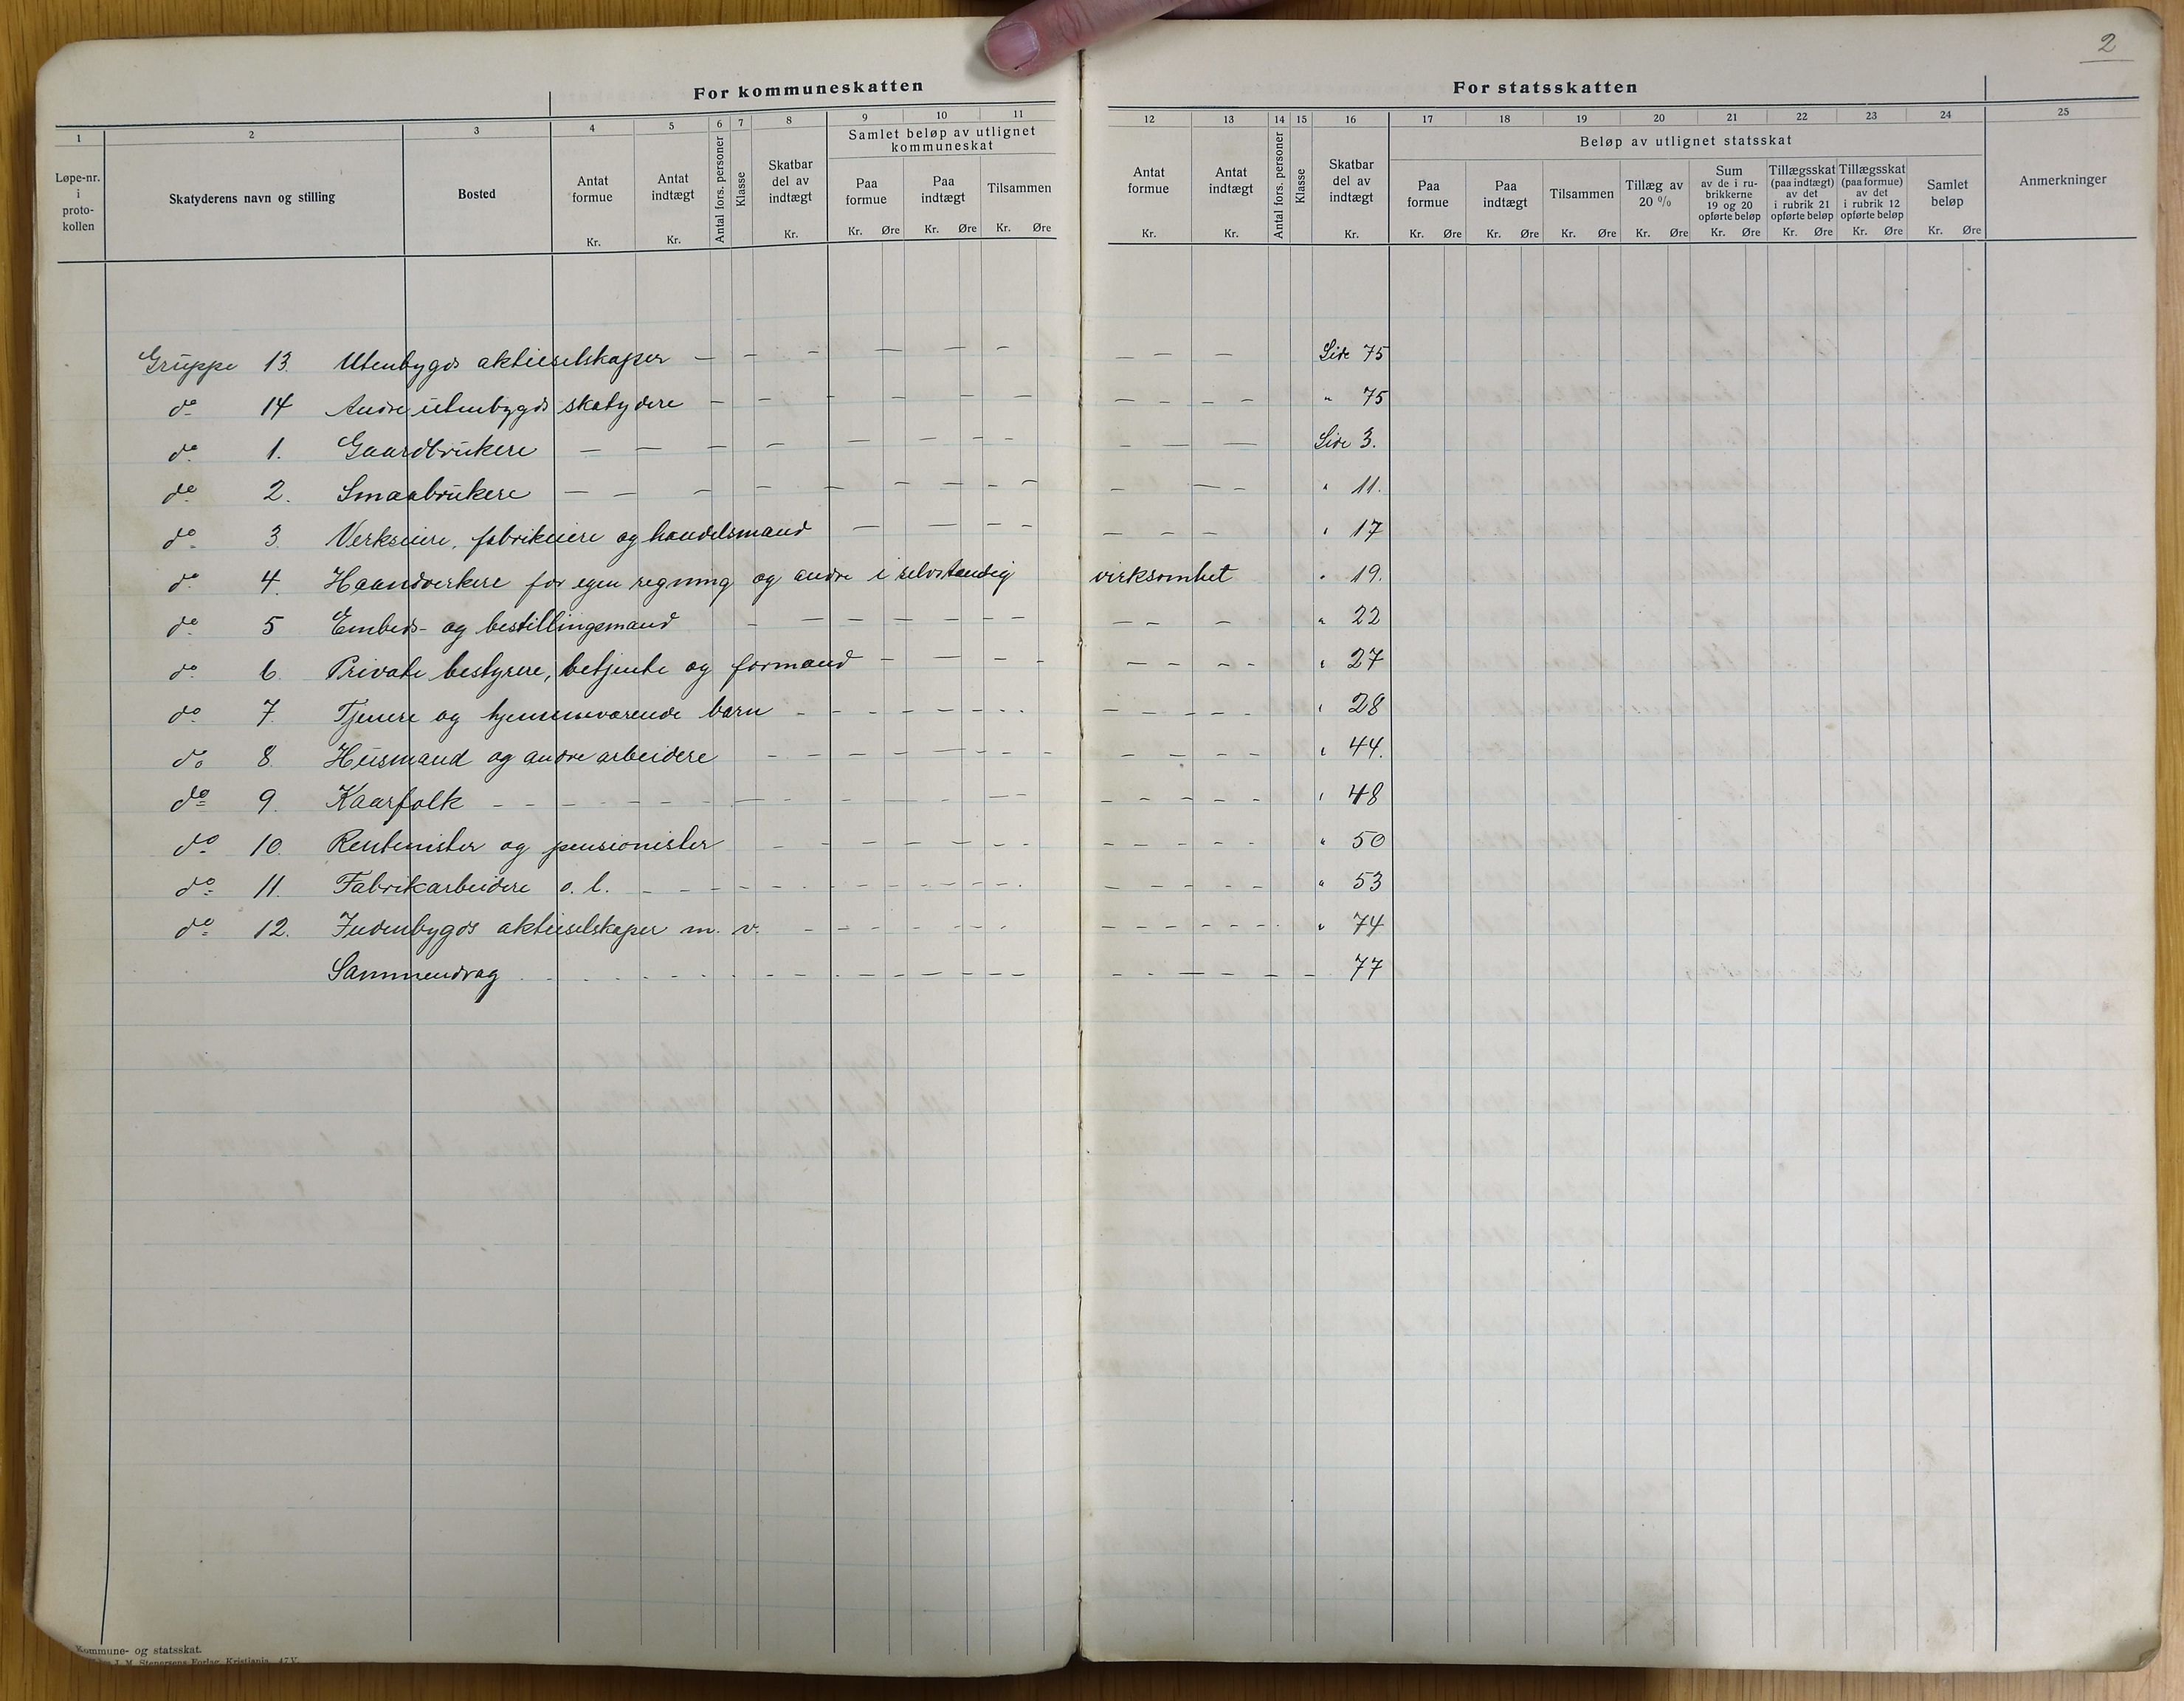 2
For kommuneskatten
For statsskatten
1 2 3 4 5 6 7 8 9 10 11 12 13 14 15 16 17 18 19 20 21 22 23 24 25
Løpe-nr. i proto-kollen
Skatyderens navn og stilling
Bosted
Antat formue Kr.
Antat indtægt Kr.
Antal fors. personer
Klasse
Skatbar del av indtægt Kr.
Samlet beløp av utlignet kommuneskat
Paa formue Kr. Øre
Paa indtægt Kr. Øre
Tilsammen Kr. Øre
Antat formue Kr.
Antat indtægt Kr.
Antal fors. personer
Klasse
Skatbar del av indtægt Kr.
Beløp av utlignet statsskat
Paa formue Kr. Øre
Paa indtægt Kr. Øre
Tilsammen Kr. Øre
Tillæg av 20 % Kr. Øre
Sum av de i ru-brikkerne 19 og 20 opførte beløp Kr. Øre
Tillægsskat (paa indtægt) av det i rubrik 21 opførte beløp Kr. Øre
Tillægsskat (paa formue) av det i rubrik 12 opførte beløp Kr. Øre
Samlet beløp Kr. Øre
Anmerkninger
Gruppe 13. Utenbygds aktieselskaper — Side 75
do 14 Andre utenbygds skatydere — " 75
do 1. Gaardbrukere — Side 3.
do 2. Smaabrukere — " 11.
do 3. Verkseiere, fabrikeiere og handelsmænd — " 17
do 4. Haandverkere for egen regning og andre i selvstændig virksomhet " 19.
do 5 Embeds- og bestillingsmænd — " 22
do 6. Private bestyrere, betjente og formænd — " 27
do 7. Tjenere og hjemmeværende barn — " 28
do 8. Husmænd og andre arbeidere — " 44.
do 9. Kaarfolk — " 48
do 10. Rentenister og pensionister — " 50
do 11. Fabrikarbeidere o. l. — " 53
do 12. Indenbygds aktieselskaper m. v. — " 74
Sammendrag — 77
Kommune- og statsskat.
J. M. Stenersens Forlag, Kristiania. 47 V.